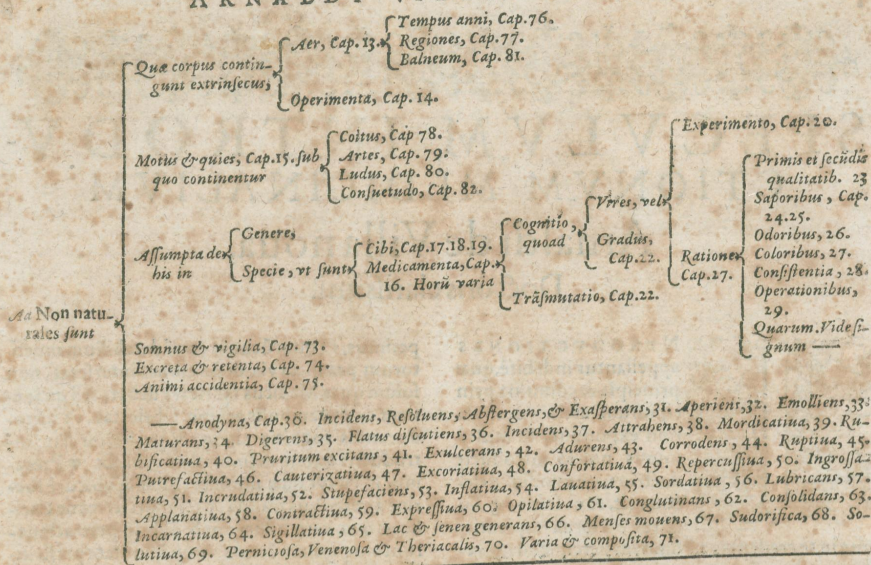 Tempus anni, Cap. 76.
Aer, Cap. 13.
Regiones, Cap. 77.
Balneum, Cap. 81.
Quæ corpus contin-
gunt extrinsecus,
Operimenta, Cap. 14.
Motus & quies, Cap. 15. sub
quo continentur
Coitus, Cap 78.
Artes, Cap. 79.
Ludus, Cap. 80.
Consuetudo, Cap. 82.
Assumpta de
his in
Genere,
Specie, vt sunt
Cibi, Cap. 17. 18. 19.
Medicamenta, Cap.
16. Horũ varia
Cognitio,
quoad
Vires, vel
Gradus,
Cap. 22.
Trãsmutatio, Cap. 22.
Experimento, Cap. 20.
Ratione
Cap. 27.
Primis et secũdis
qualitatib. 23
Saporibus, Cap.
24. 25.
Odoribus, 26.
Coloribus, 27.
Consistentia, 28.
Operationibus,
29.
Quarum. Vide si-
gnum —
Aa Non natu-
rales sunt
Somnus & vigilia, Cap. 73.
Excreta & retenta, Cap. 74.
Animi accidentia, Cap. 75.
— Anodyna, Cap. 30. Incidens, Resoluens, Abstergens, & Exasperans, 31. Aperiens, 32. Emolliens, 33.
Maturans, 34. Digerens, 35. Flatus discutiens, 36. Incidens, 37. Attrahens, 38. Mordicatiua, 39. Ru-
bificatiua, 40. Pruritum excitans, 41. Exulcerans, 42. Adurens, 43. Corrodens, 44. Ruptiua, 45.
Putrefactiua, 46. Cauterizatiua, 47. Excoriatiua, 48. Confortatiua, 49. Repercussiua, 50. Ingrossa-
tiua, 51. Incrudatiua, 52. Stupefaciens, 53. Inflatiua, 54. Lauatiua, 55. Sordatiua, 56. Lubricans, 57.
Applanatiua, 58. Contractiua, 59. Expressiua, 60. Opilatiua, 61. Conglutinans, 62. Consolidans, 63.
Incarnatiua, 64. Sigillatiua, 65. Lac & semen generans, 66. Menses mouens, 67. Sudorifica, 68. So-
lutiua, 69. Perniciosa, Venenosa & Theriacalis, 70. Varia & composita, 71.